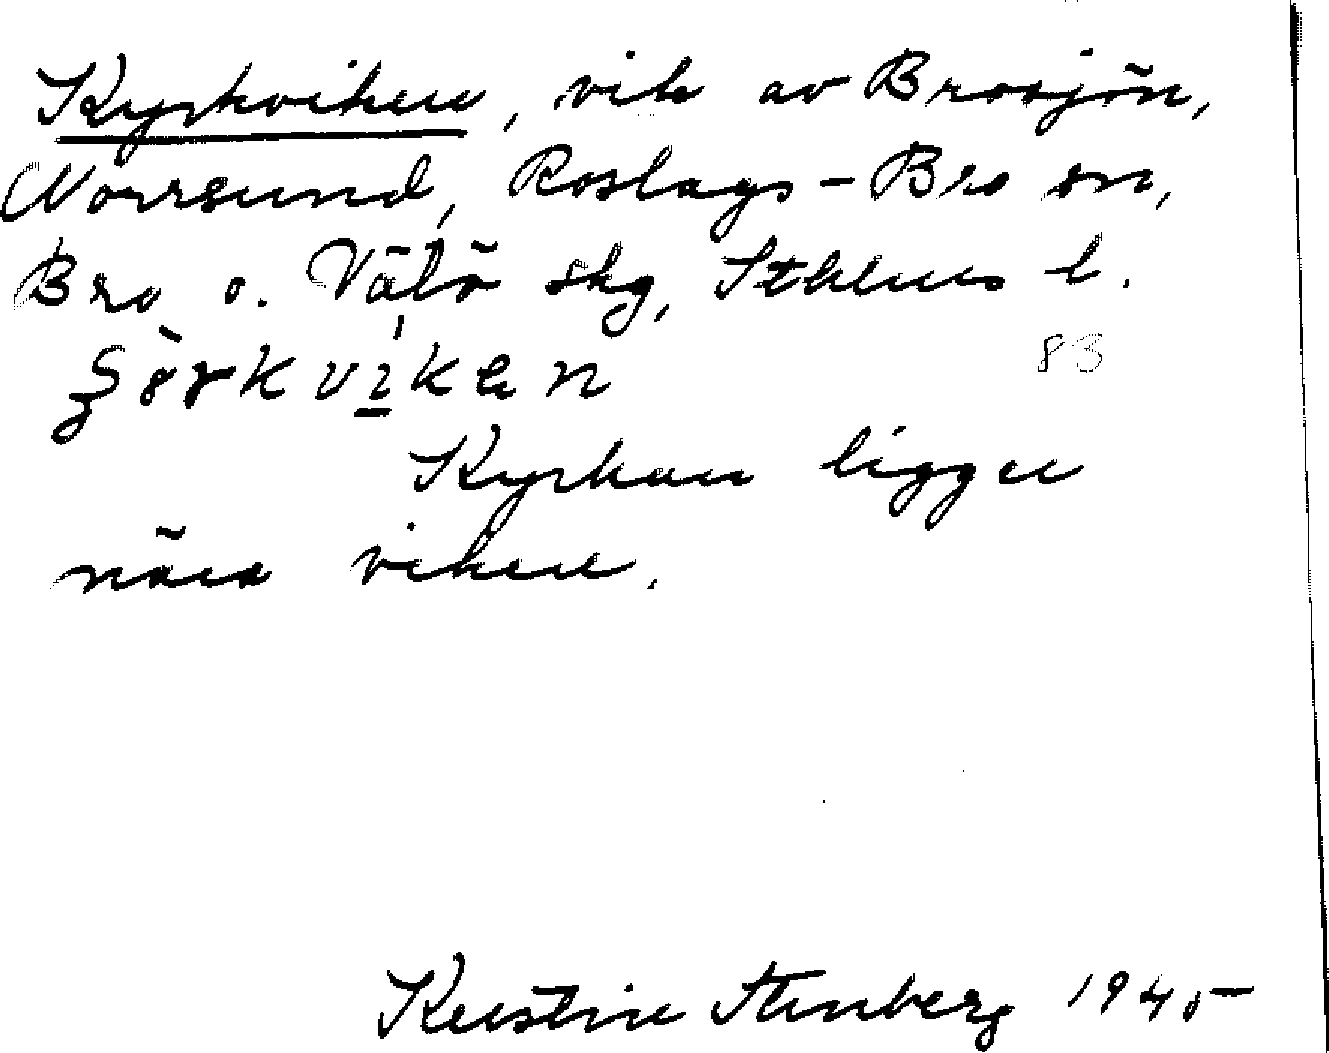 Kyrkviken, vik av Brosjön,
Norrsund, Roslags-Bro sn,
Bro o. Vätö skg, Sthlms l.
83
Kyrkan ligger
nära viken.
Kerstin Stenberg 1945